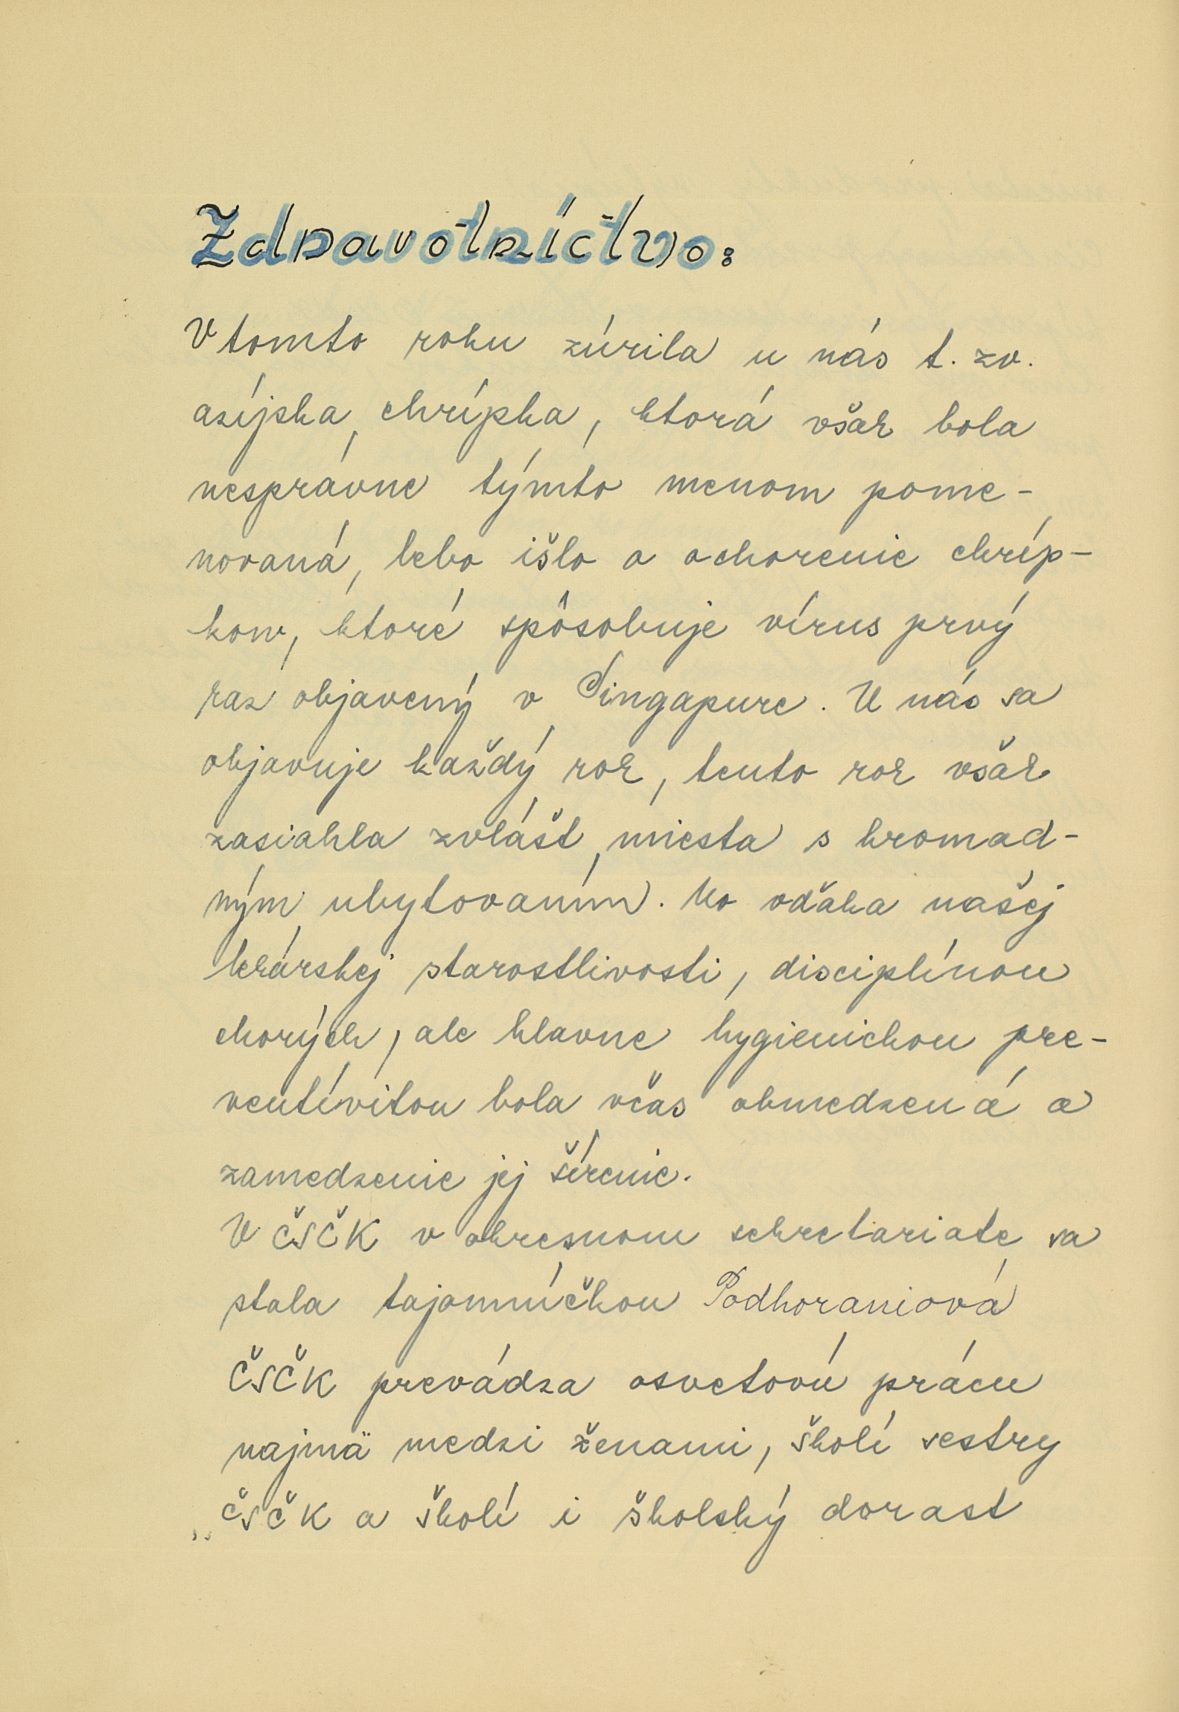 Zdravotníctvo:
V tomto roku zúrila u nás t. zv.
azíjska chrípka, ktorá však bola
nesprávne týmto menom pome-
novaná, lebo išlo o ochorenie chríp-
kou, ktoré spôsobuje vírus prvý
raz objavený v Singapure. U nás sa
objavuje každý rok, tento rok však
zasiahla zvlášt miesta s hromad-
ným ubytovaním. No vďaka našej
lekárskej starostlivosti, disciplínou
chorých, ale hlavne hygienickou pre-
ventívitou bola včas obmedzená a
zamedzenie jej šírenie.
V ČSČK v okresnom sekretariate sa
stala tajomníčkou Podhoraniová
ČSČK prevádza osvetovú prácu
najmä medzi ženami, školí sestry
ČSČK a školí i školský dorast